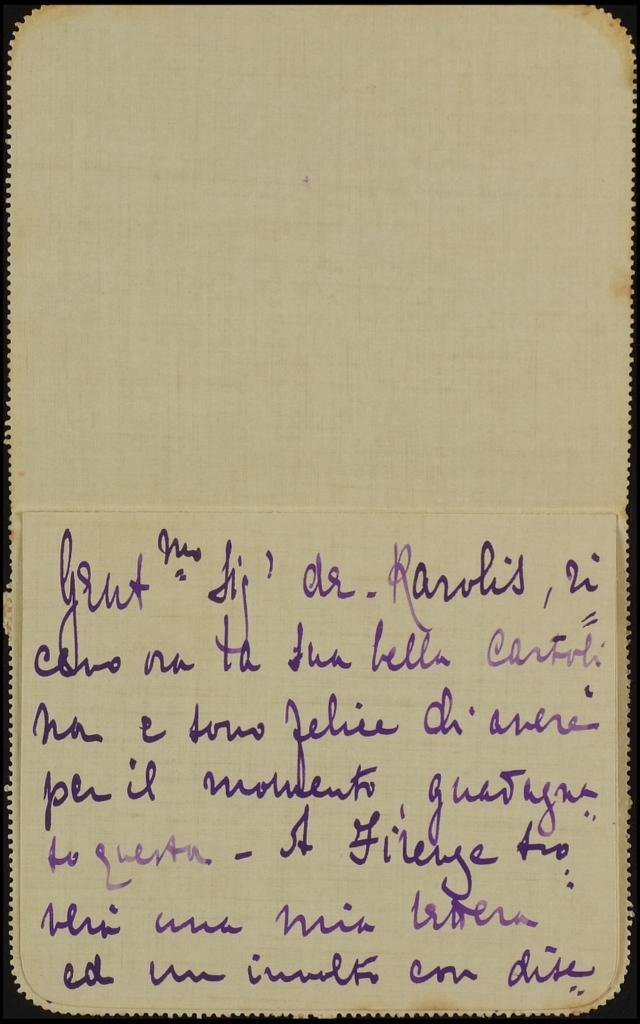 Gent.mo Sig.r de-Karolis, ri=
cevo ora la sua bella cartoli=
na e sono felice di avere
per il momento, guadagna=
to questa. - A Firenze tro=
verà una mia lettera
ed un involto con dise=